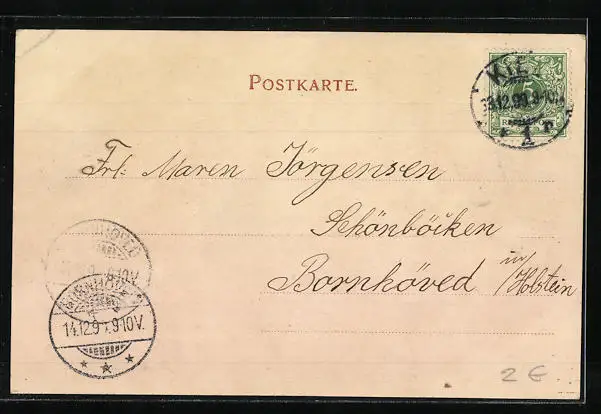 POSTKARTE.
5
KIE
12.99.9-10
1
Frl: Maren Jörgensen
Schönböcken
Bornhöved i/Holstein
BORNHÖVED
14.12.9 9-10V.
2 €